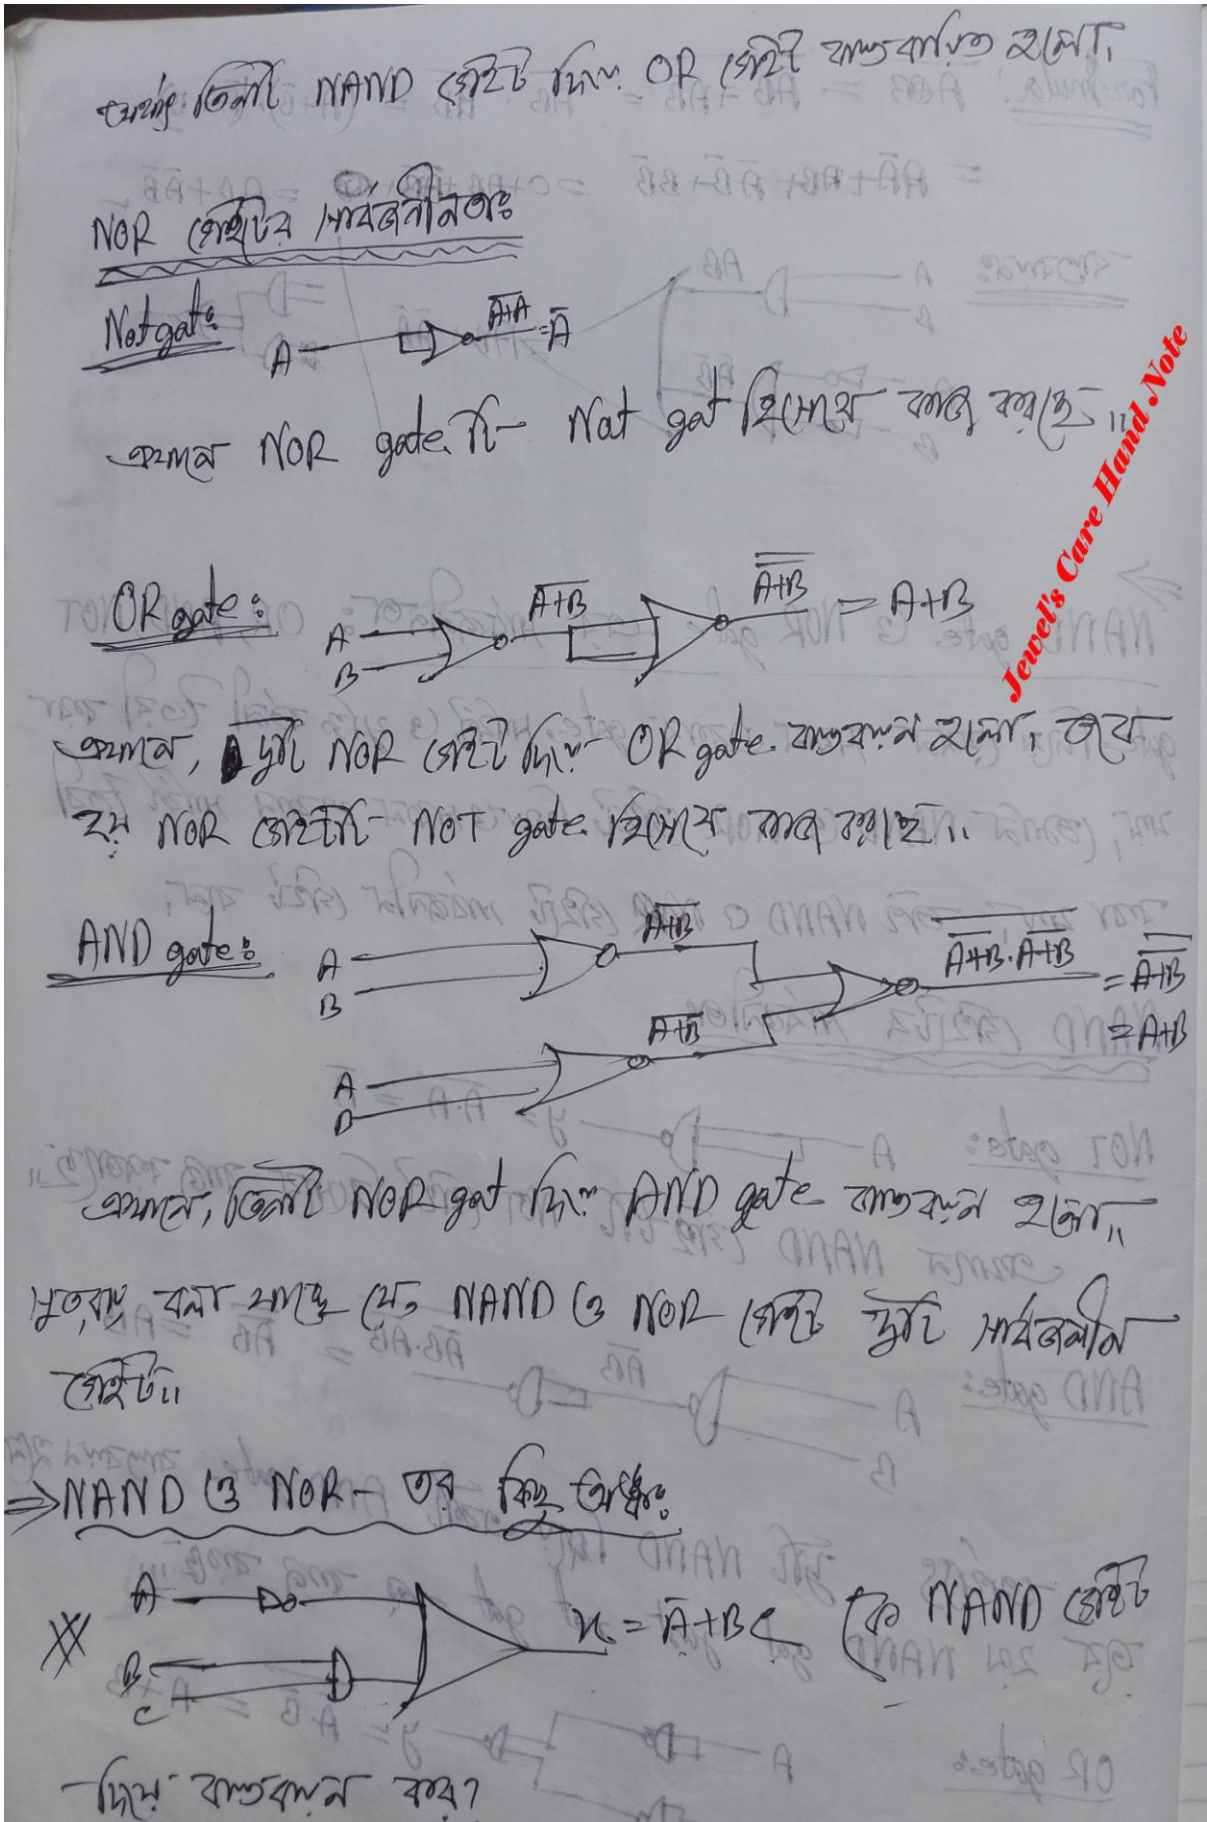 অর্থাৎ তিনটি NAND গেইট দিয়ে OR গেইট বাস্তবায়িত হলো।
NOR গেইটের সার্বজনীনতাঃ
Not gat:
A
A̅+̅A̅ = A̅
এখানে NOR gate টি Not gat হিসেবে কাজ করছে।।
Jewel's Care Hand Note
OR gate:
A
B
A̅+̅B̅
A̿+̿B̿ = A+B
এখানে, দুটি NOR গেইট দিয়ে OR gate বাস্তবায়ন হলো, তবে
২য় NOR গেইটটি NOT gate হিসেবে কাজ করছে।।
AND gate:
A
B
A̅+̅B̅
A
B
A̅+̅B̅
A̿+̿B̿.̅A̿+̿B̿ = A̿+̿B̿
= A+B
এখানে, তিনটি NOR gat দিয়ে AND gate বাস্তবায়ন হলো।।
সুতরাং বলা যাচ্ছে যে, NAND ও NOR গেইট দুটি সার্বজনীন
গেইট।।
⇒ NAND ও NOR - এর কিছু অঙ্কঃ
A
B
C
x = A̅+BC কে NAND গেইট
দিয়ে বাস্তবায়ন কর?